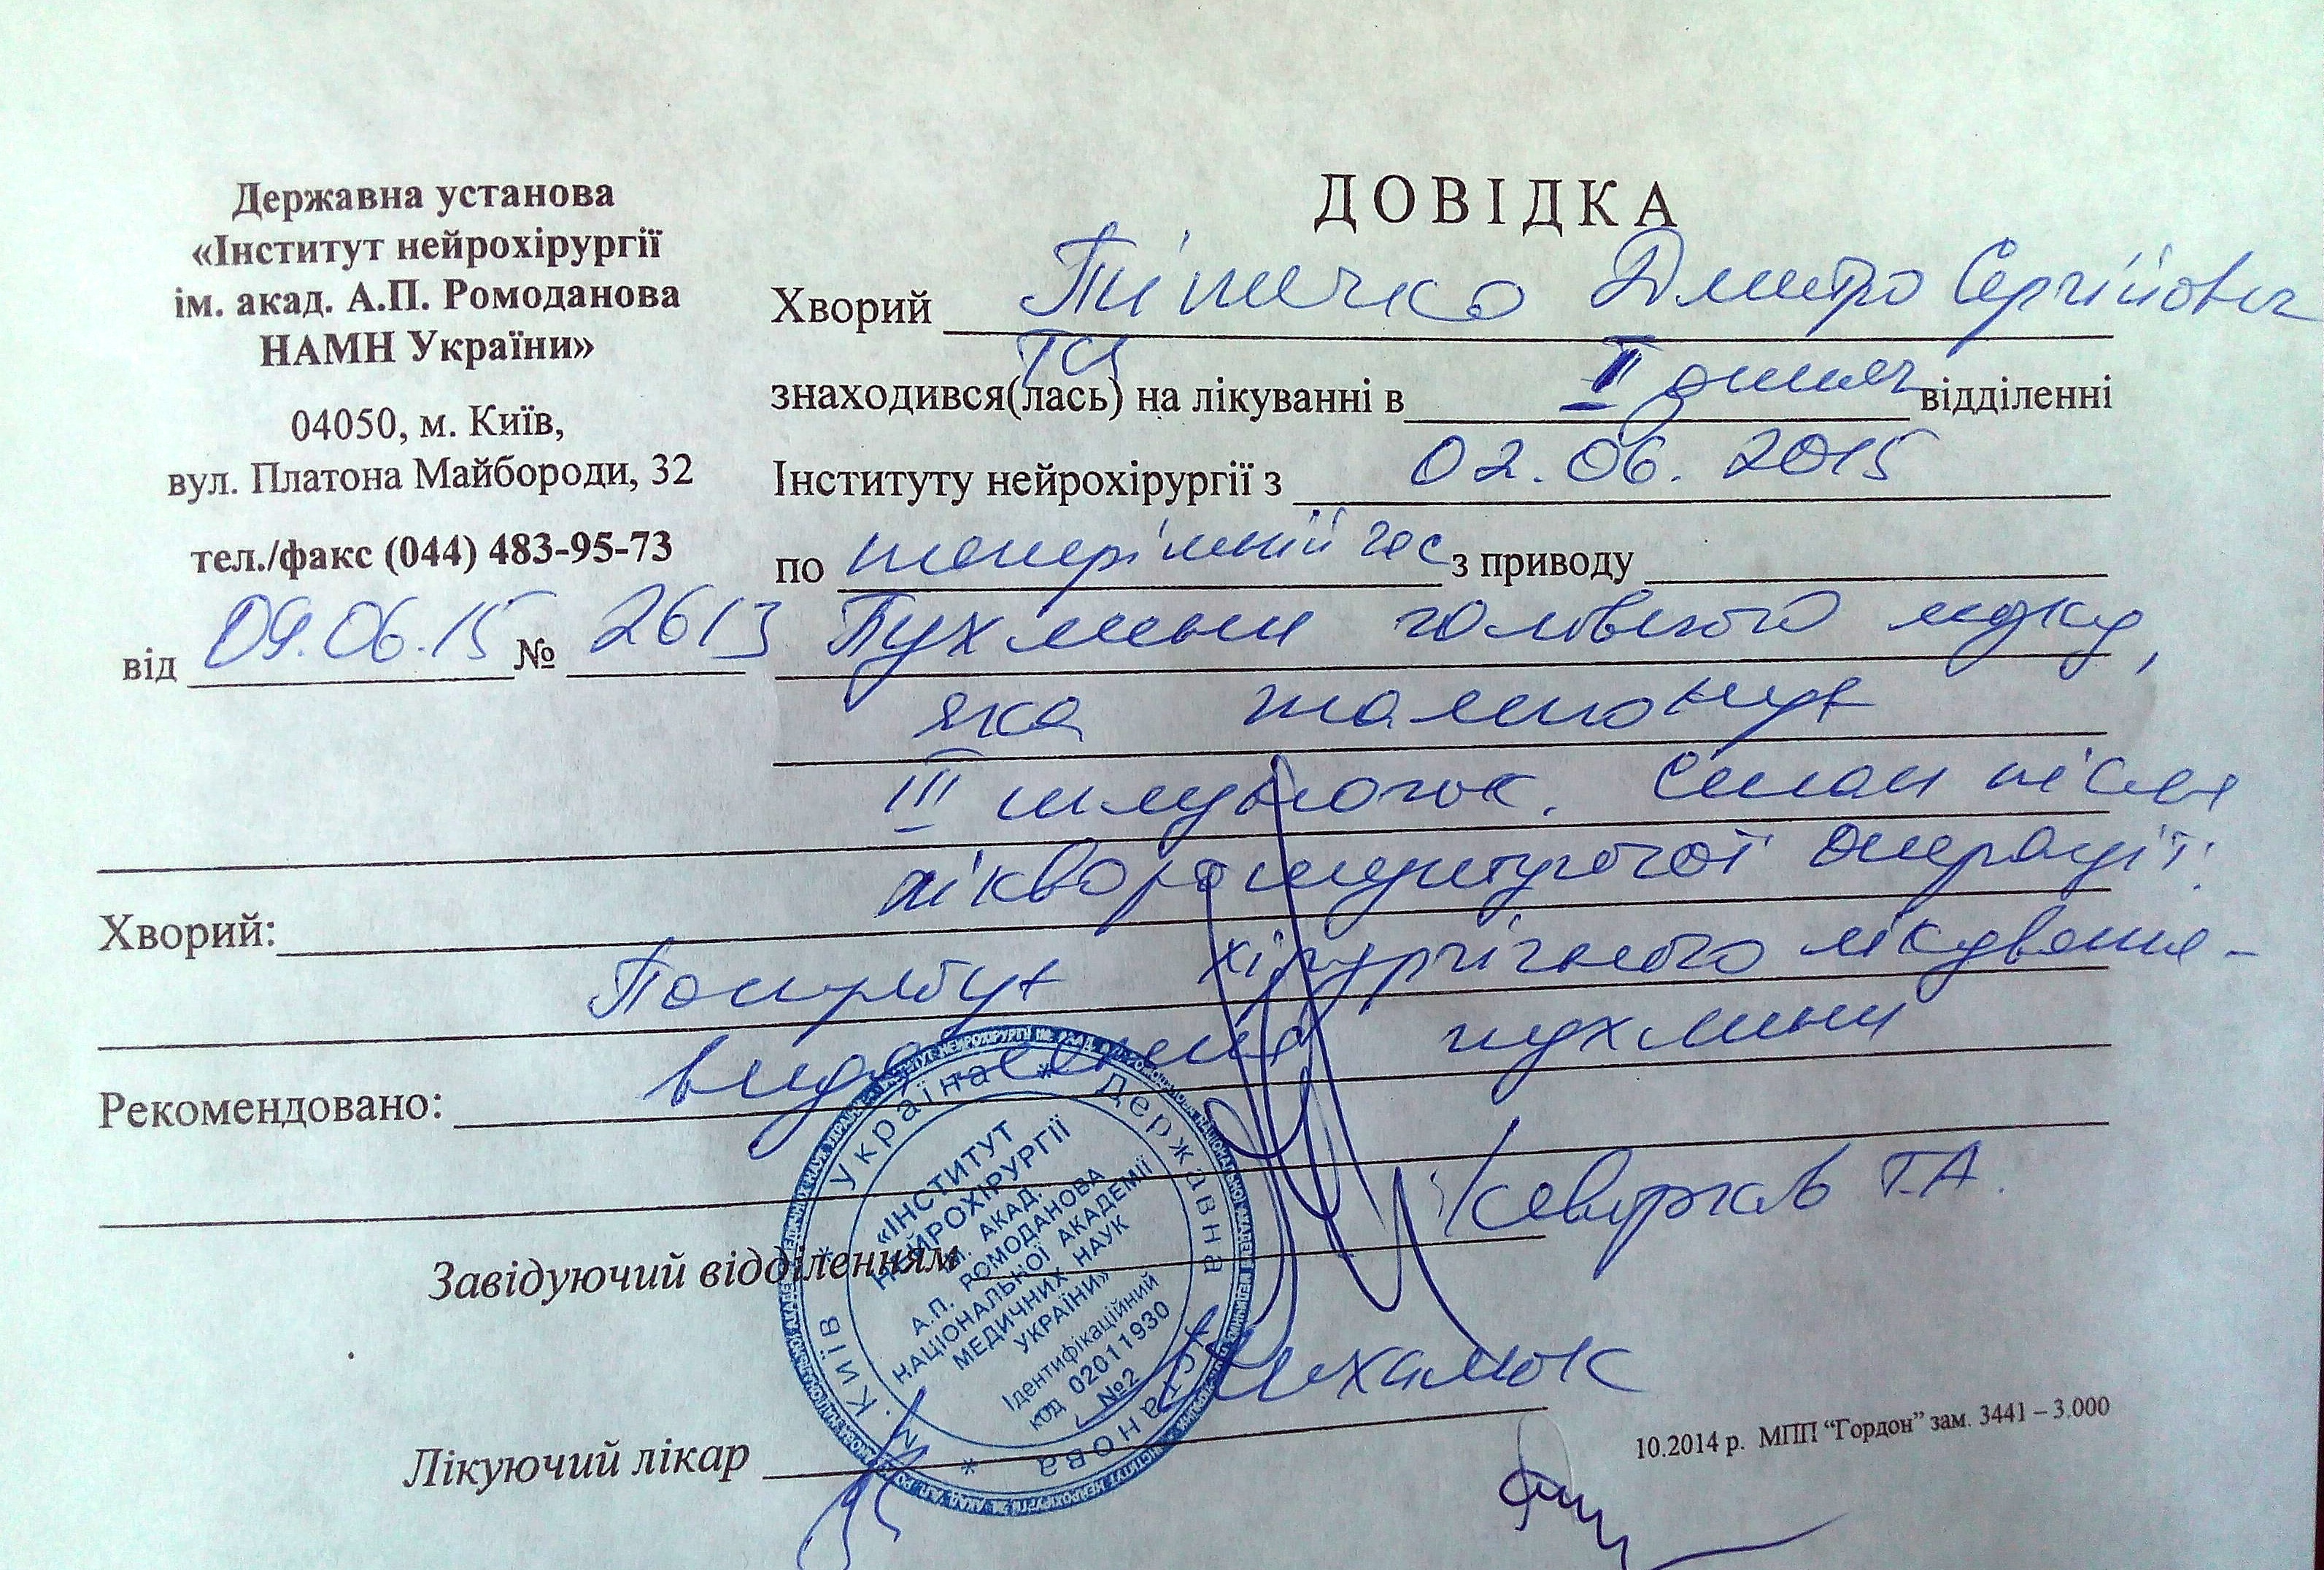 Державна установа
«Інститут нейрохірургії
ім. акад. А.П. Ромоданова
НАМН України»
04050, м. Київ,
вул. Платона Майбороди, 32
тел./факс (044) 483-95-73
від 09.06.15 № 2613
ДОВІДКА
Хворий Дмитро Сергійович
знаходився(лась) на лікуванні в II відділенні
Інституту нейрохірургії з 02.06.2015
по теперішній час з приводу
Пухлини головного мозку,
яка тампонує
III шлуночок. Стан після
лікворошунтуючої операції.
Хворий:
Потребує хірургічного лікування -
видалення пухлини
Рекомендовано:
Завідуючий відділенням Т.А.
Лікуючий лікар Михалюк
Україна * Державна установа * м. Київ *
«ІНСТИТУТ
НЕЙРОХІРУРГІЇ
ІМ. АКАД.
А.П. РОМОДАНОВА
НАЦІОНАЛЬНОЇ АКАДЕМІЇ
МЕДИЧНИХ НАУК
УКРАЇНИ»
Ідентифікаційний
код 02011930
№2
10.2014 р. МПП “Гордон” зам. 3441 – 3.000